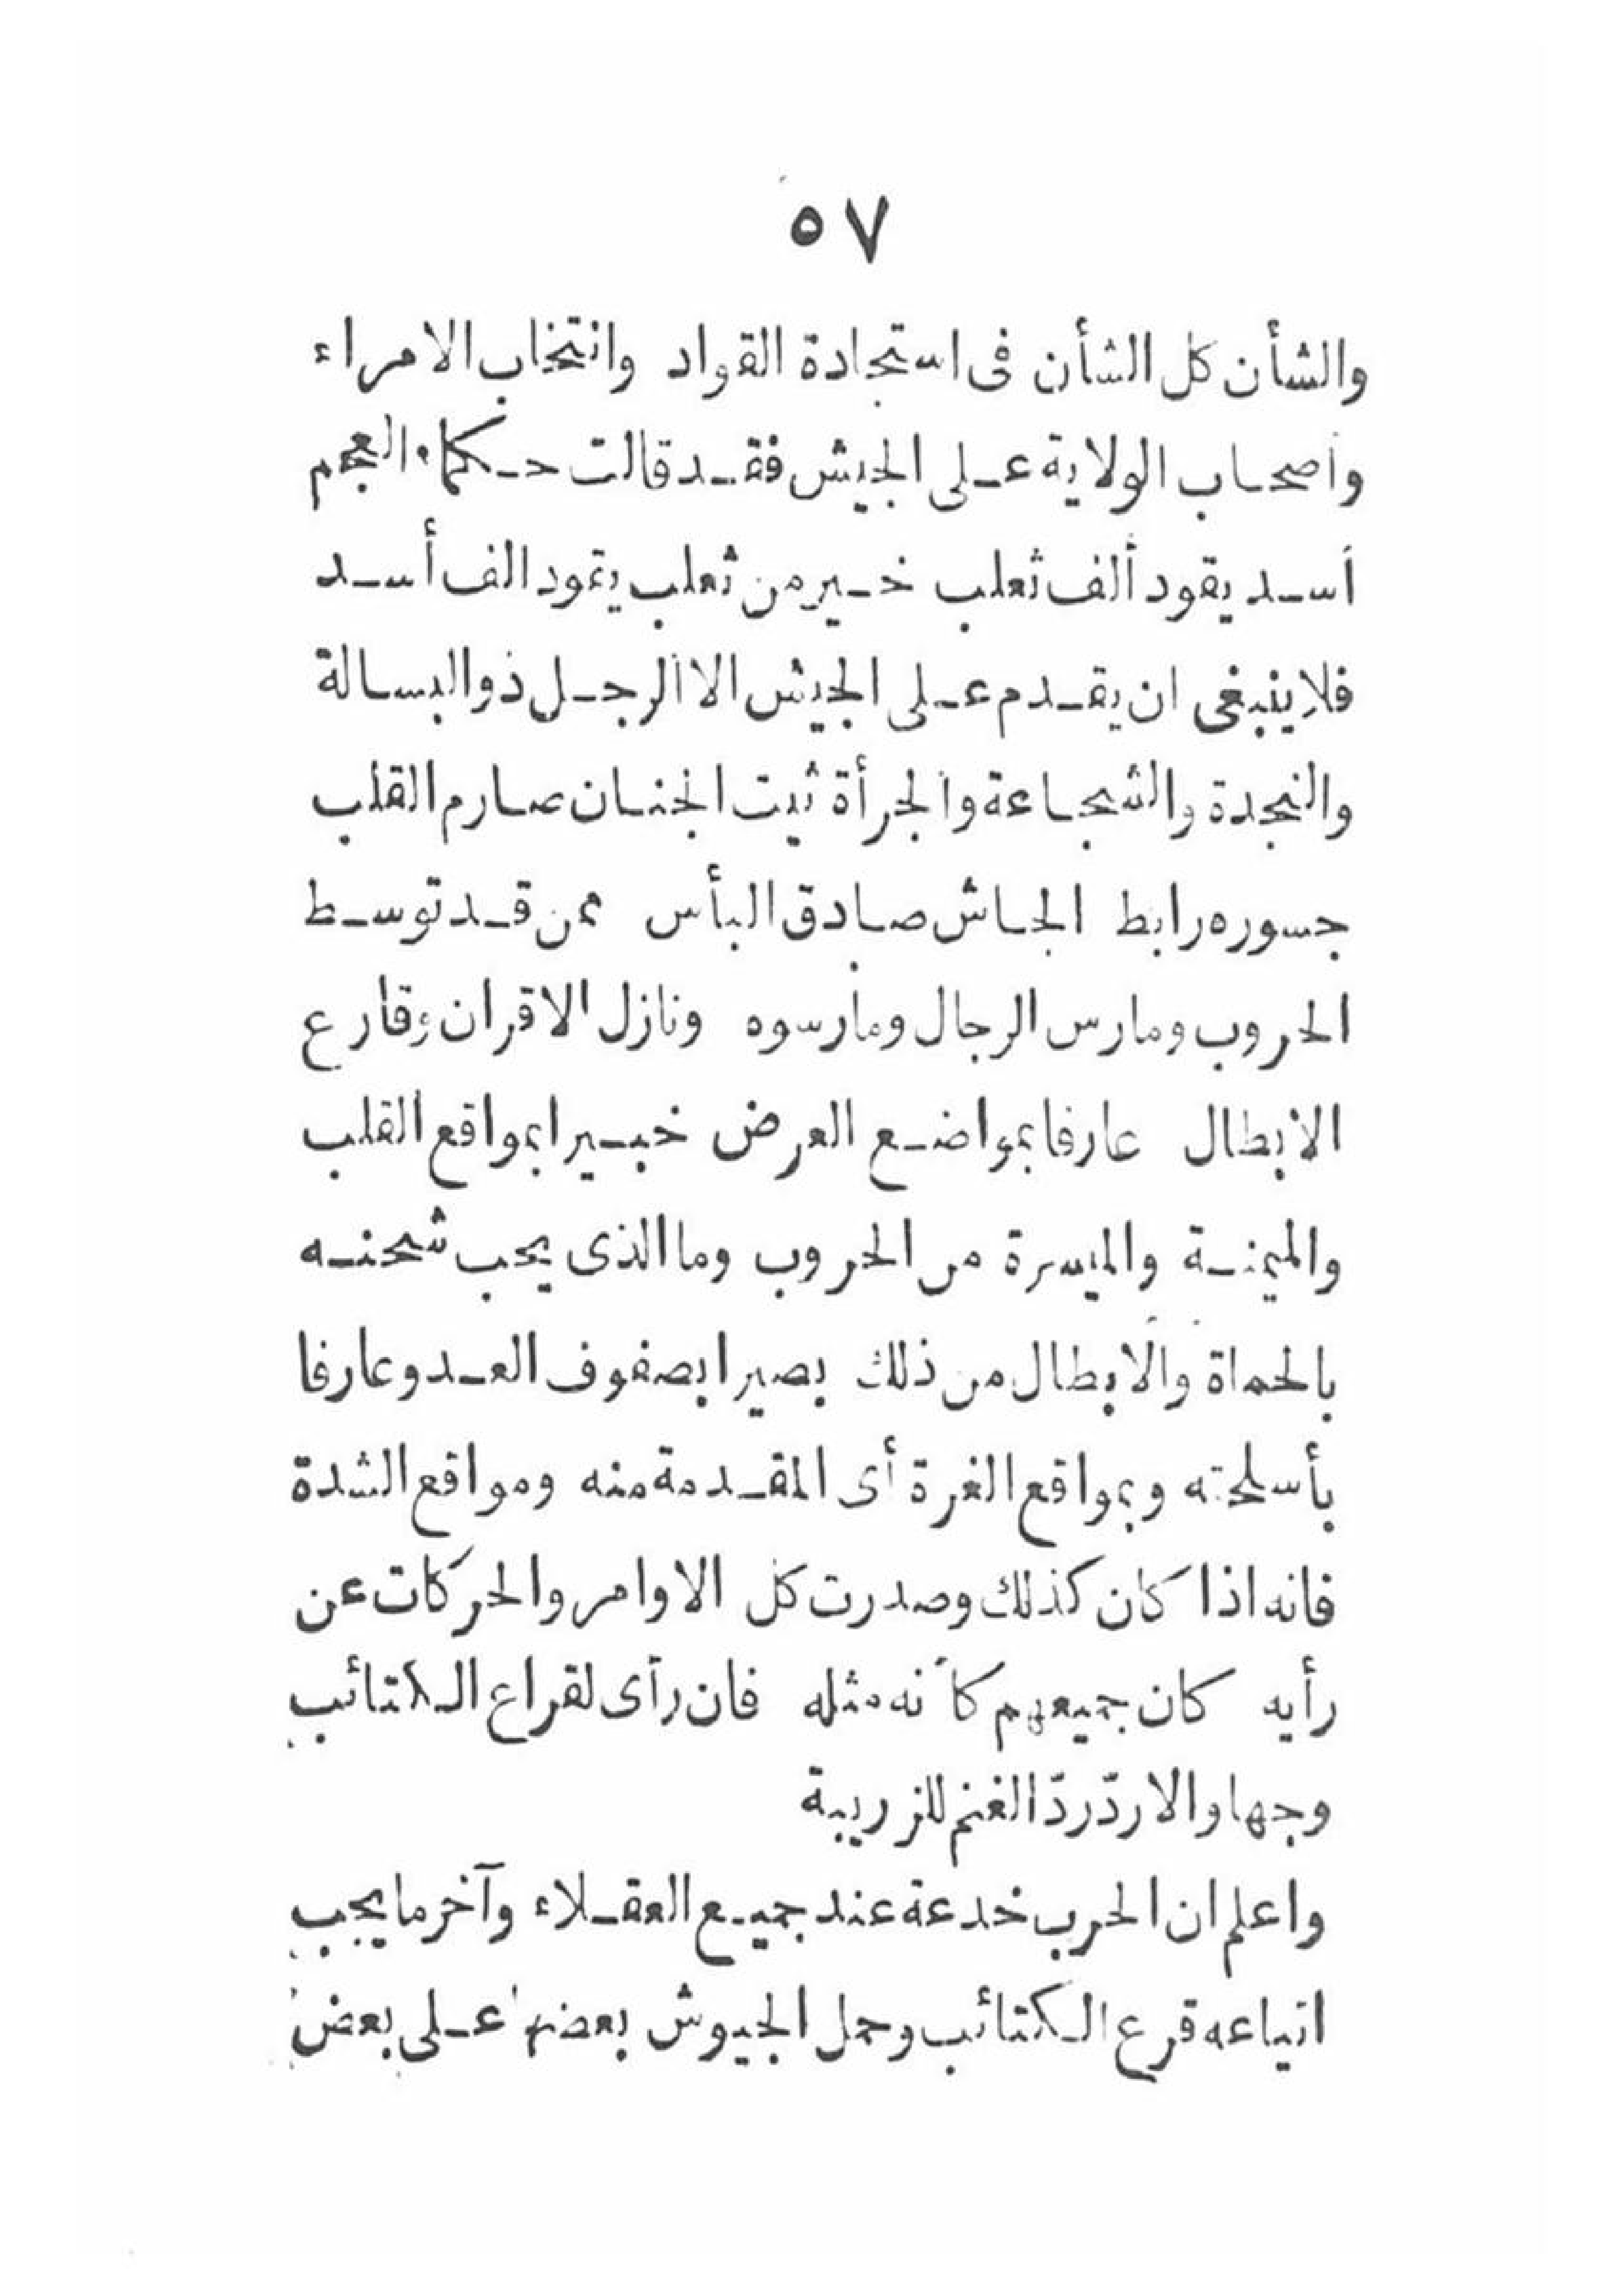 ٥٧
والشأن كل الشأن فى استجادة القواد وانتخاب الامراء
وأصحاب الولاية على الجيش فقد قالت حكماء العجم
أسد يقود ألف ثعلب خير من ثعلب يقود الف أسد
فلا ينبغى ان يقدم على الجيش الا الرجل ذو البسالة
والنجدة والشجاعة والجرأة ثبت الجنان صارم القلب
جسوره رابط الجاش صادق البأس ممن قد توسط
الحروب ومارس الرجال ومارسوه ونازل الاقران وقارع
الابطال عارفا بمواضع العرض خبيرا بمواقع القلب
والميمنة والميسرة من الحروب وما الذى يجب شحنه
بالحماة والابطال من ذلك بصيرا بصفوف العدو عارفا
بأسلحته وبمواقع الغرة أى المقدمة منه ومواقع الشدة
فانه اذا كان كذلك وصدرت كل الاوامر والحركات عن
رأيه كان جميعهم كأنه مثله فان رأى لقراع الكتائب
وجها والا ردّ ردّ الغنم للزريبة
واعلم ان الحرب خدعة عند جميع العقلاء وآخر ما يجب
اتباعه قرع الكتائب وحمل الجيوش بعضها على بعض